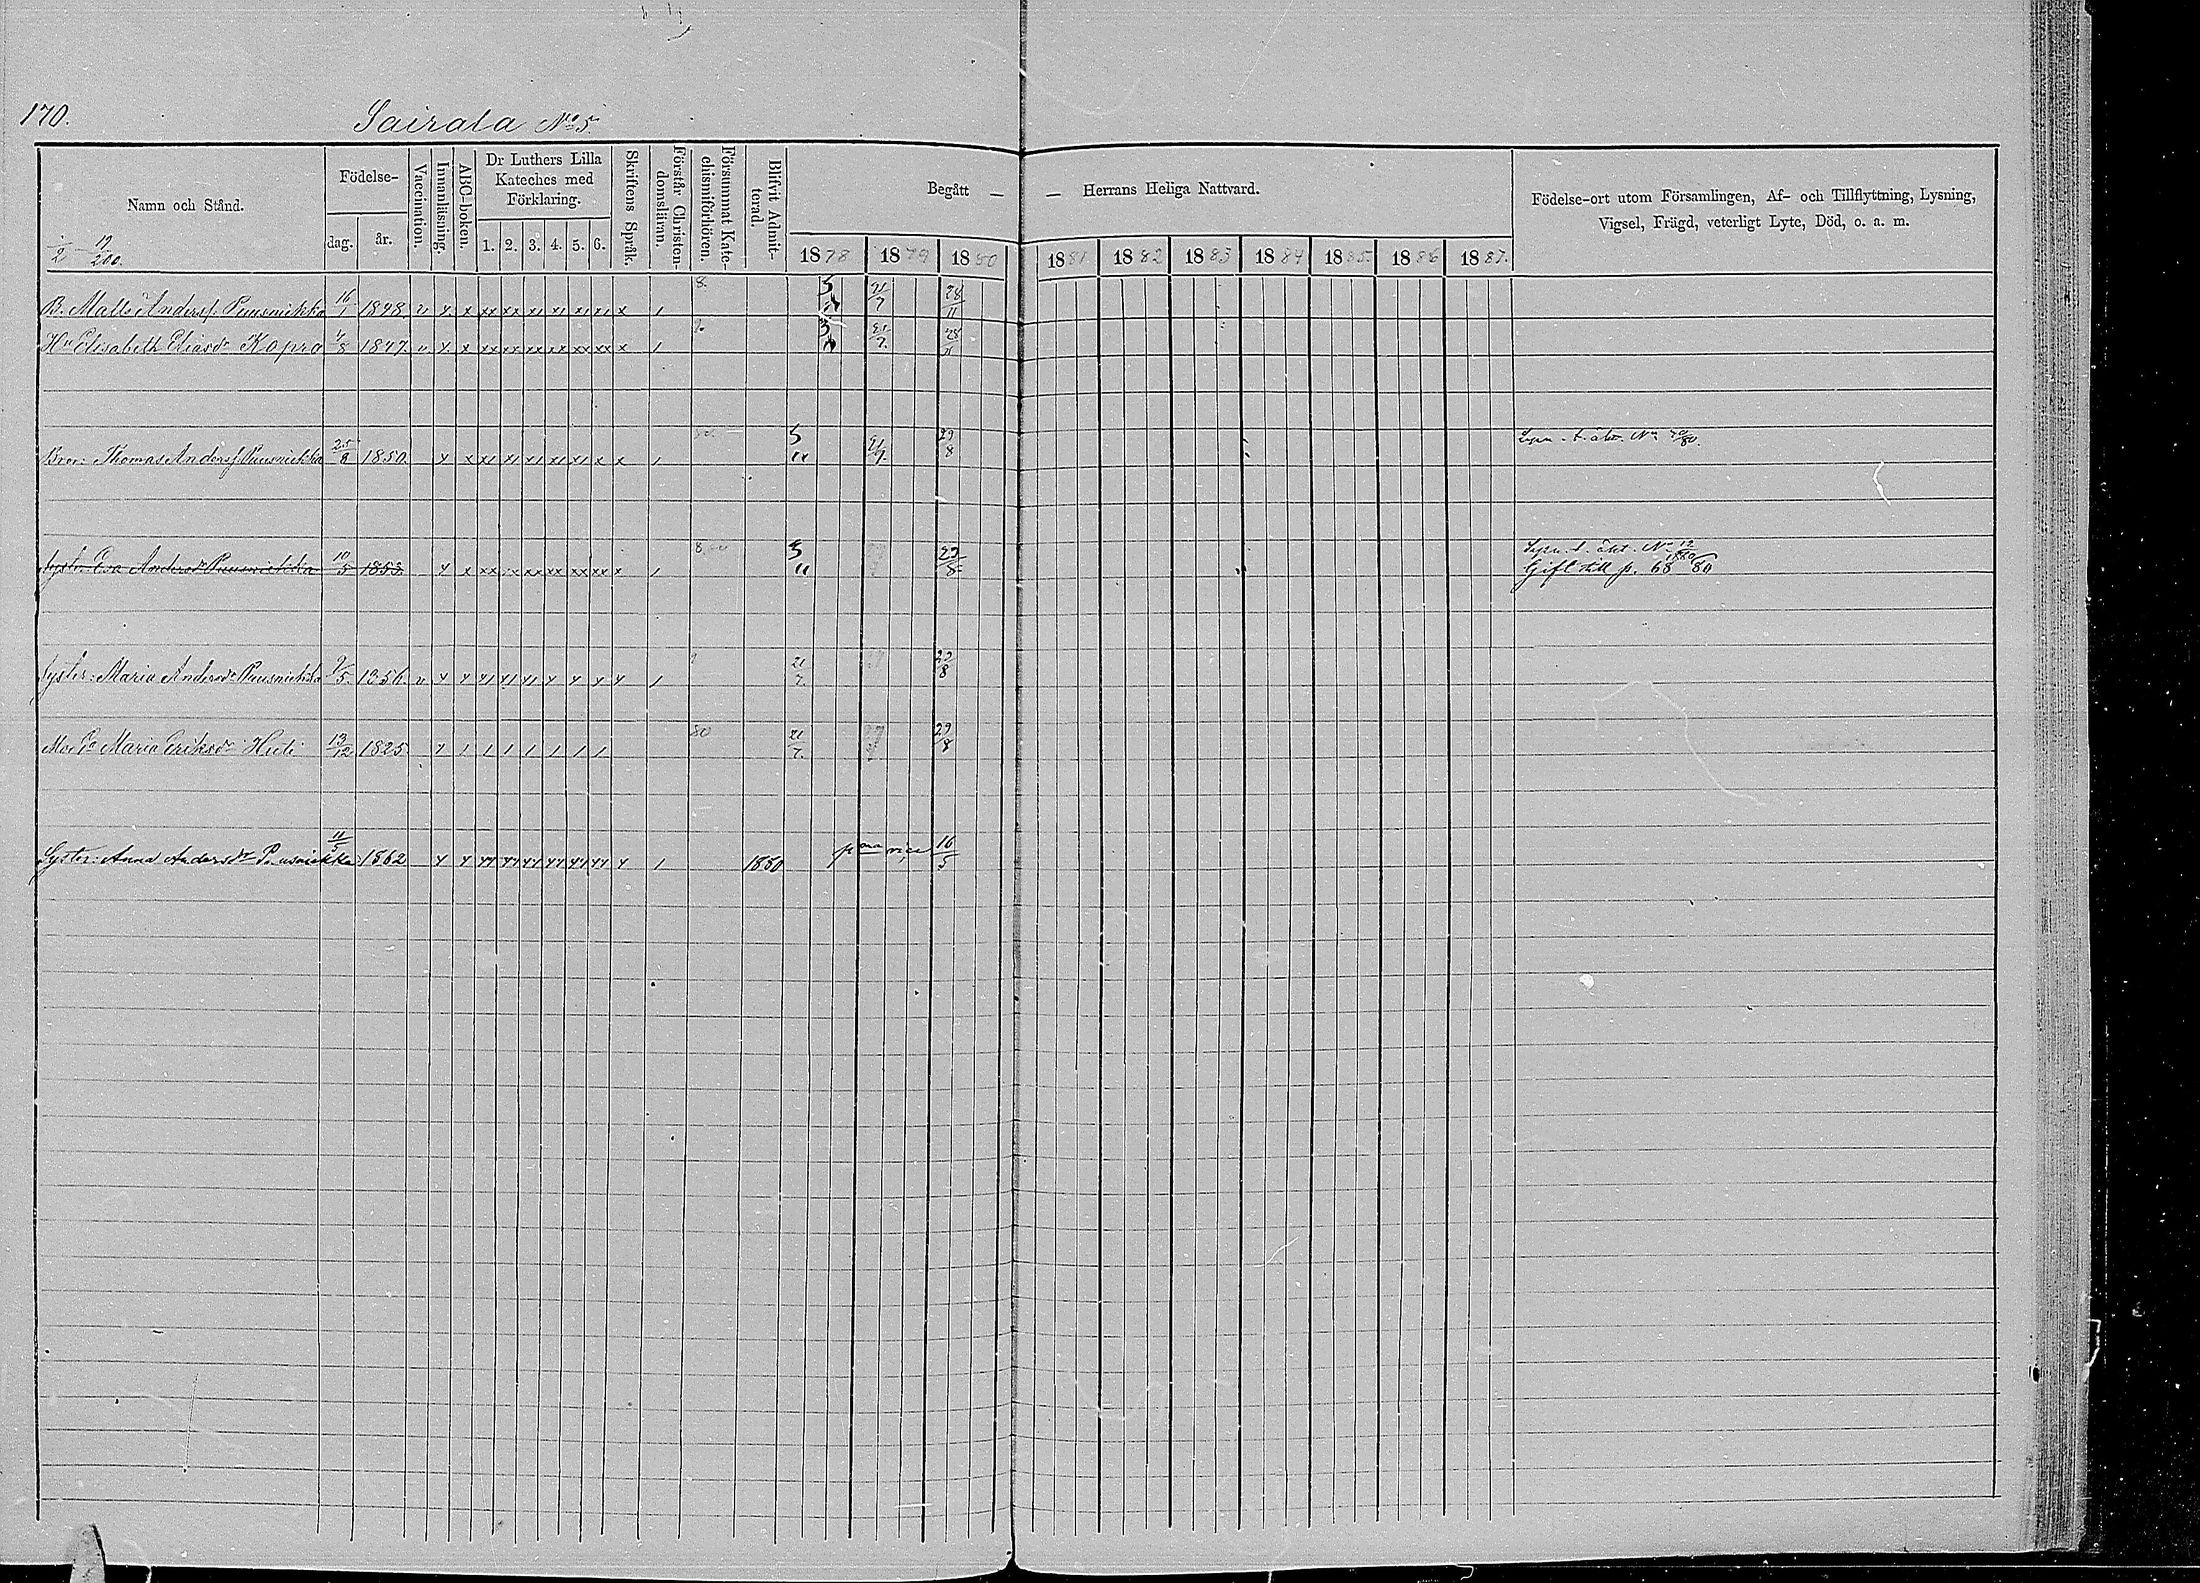 170.
Sairala No 5.
Namn och Stånd.
Födelse-
dag.
år.
Vaccination.
Innanläsning.
ABC-boken.
Dr Luthers Lilla
Kateches med
Förklaring.
1. 2. 3. 4. 5. 6.
Skriftens Språk.
Förstår Christen-
domsläran.
Försummat Kate-
chismiförhören.
Blifvit Admit-
terad.
Begått — — Herrans Heliga Nattvard.
1878 1879 1880 1881 1882 1883 1884 1885 1886 1887.
Födelse-ort utom Församlingen, Af- och Tillflyttning, Lysning,
Vigsel, Frägd, veterligt Lyte, Död, o. a. m.
B. Matts Anders. Puusniekka 16/1 1848 v x x xx xx x1 x1 x1 x1 x 1 21/7 28/11
Hu Elisabeth Eliasdr Kopra 1847 v x x xx xx xx xx xx xx x 1 21/7 28/11
Bror: Thomas Anders. Puusniekka 25/8 1850 x x x1 x1 x1 x1 x1 x x 1 5/11 21/7 29/8
Syst. Eva Andersdr Puusniekka 10/5 1853 x x xx xx xx xx xx x 1 5/11 29/8
Gift till p. 68 /80
Syster: Maria Andersdr Puusniekka 9/5 1856 v x x x1 x1 x1 x x x x 1 21/7 29/8
Mod. Maria Eriksdr Huli 13/12 1825 x 1 1 1 1 1 1 1 80 21/7 29/8
Syster: Anna Andersdr Puusniekka 11/5 1862 x x xx xx xx xx xx xx x 1 1880 pma vice 16/5